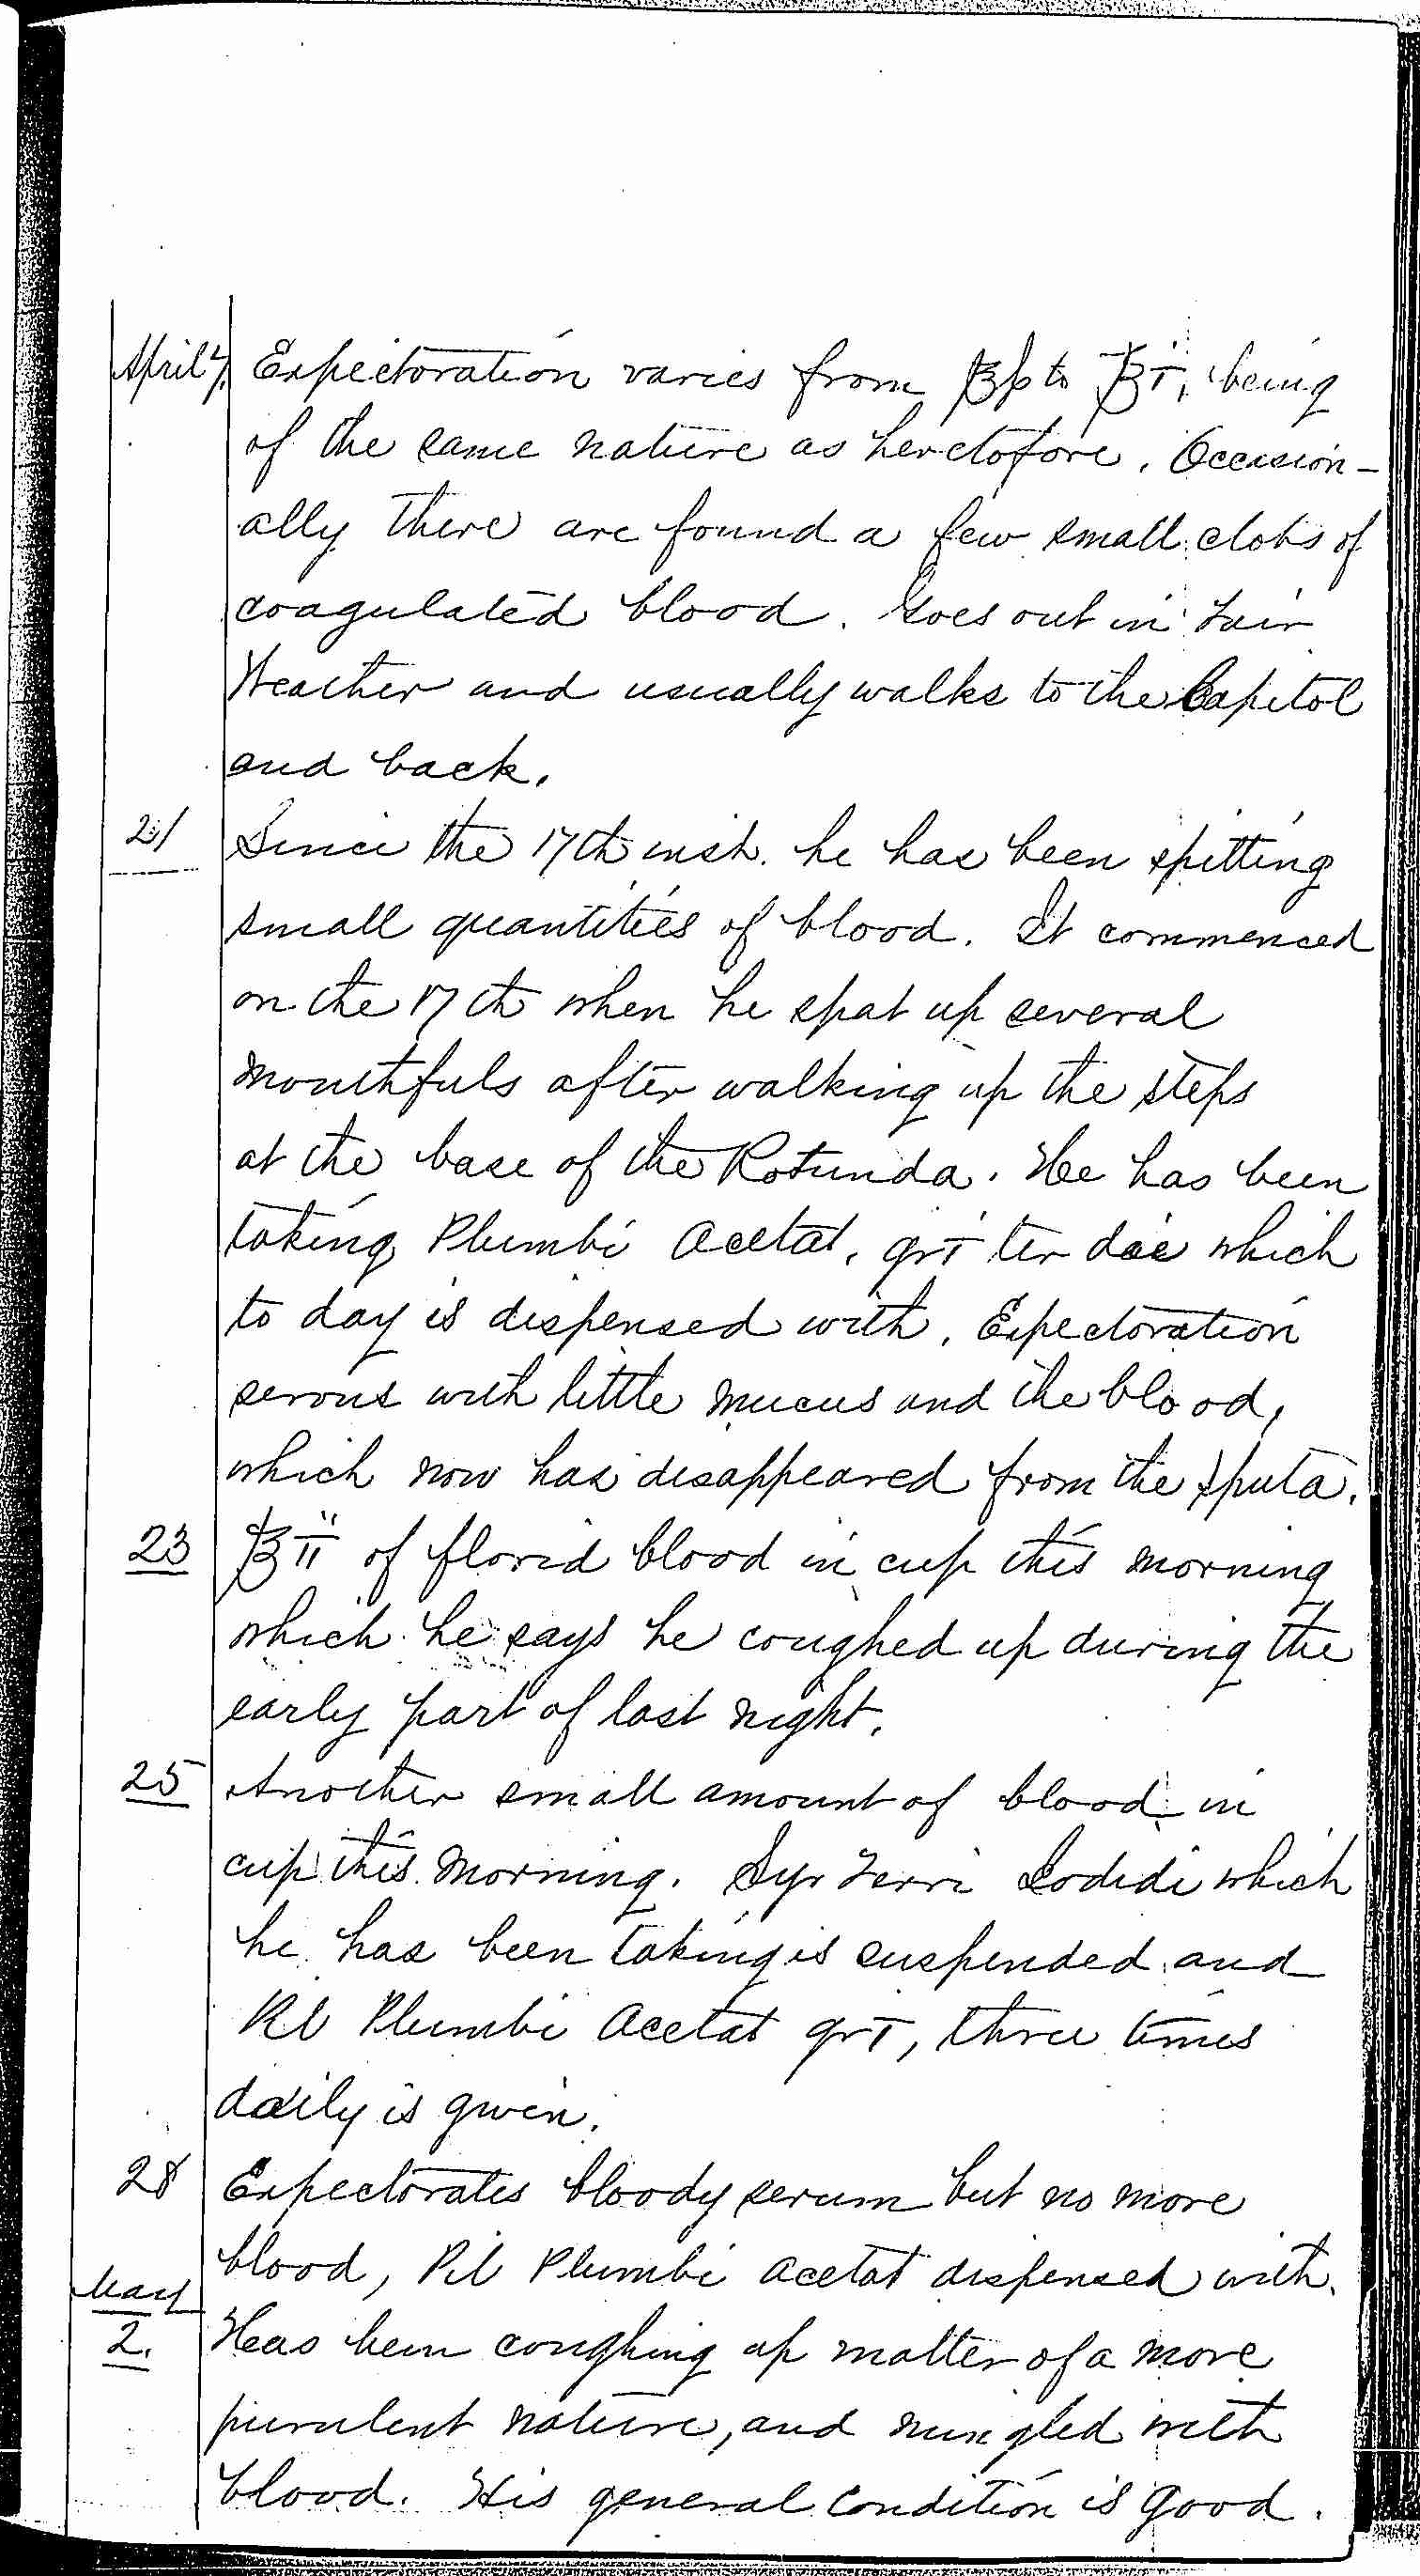 April 7. Expectoration varies from ℥ß to ℥i, being
of the same nature as heretofore. Occasion-
ally there are found a few small clots of
coagulated blood. Goes out in fair
Weather and usually walks to the Capitol
and back.
21 Since the 17th inst. he has been spitting
small quantities of blood. It commenced
on the 17th when he spat up several
mouthfuls after walking up the steps
at the base of the Rotunda. He has been
taking Plumbi Acetat. gr i ter die which
to day is dispensed with. Expectoration
serous with little mucus and the blood,
which now has disappeared from the sputa.
23 ℥ii of florid blood in cup this morning
which he says he coughed up during the
early part of last night.
25 Another small amount of blood in
cup this morning. Syr Ferri Iodidi which
he has been taking is suspended and
Pil Plumbi Acetat gr i, three times
daily is given.
28 Expectorates bloody serum but no more
blood, Pil Plumbi Acetat dispensed with.
May
2. Has been coughing up matter of a more
purulent nature, and mingled with
blood. His general condition is good.